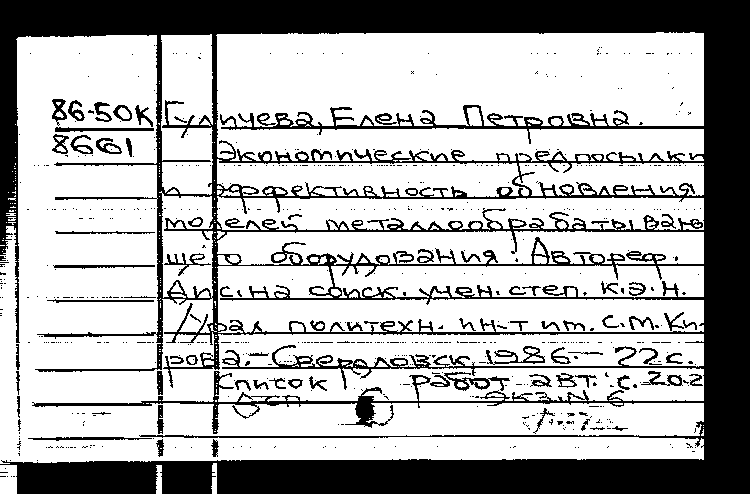 86-50К Гуличева, Елена Петровна.
8661
Экономические предпосылки
и эффективность обновления
моделей металлообрабатываю
щего оборудования: Автореф.
Дис. на соиск. учен. степ. к.э.н.
/Урал. политехн. ин-т им. С.М. Ки-
рова. - Свердловск, 1986. - 22с.
Список работ авт.: с. 202
Дсп Экз. N 6